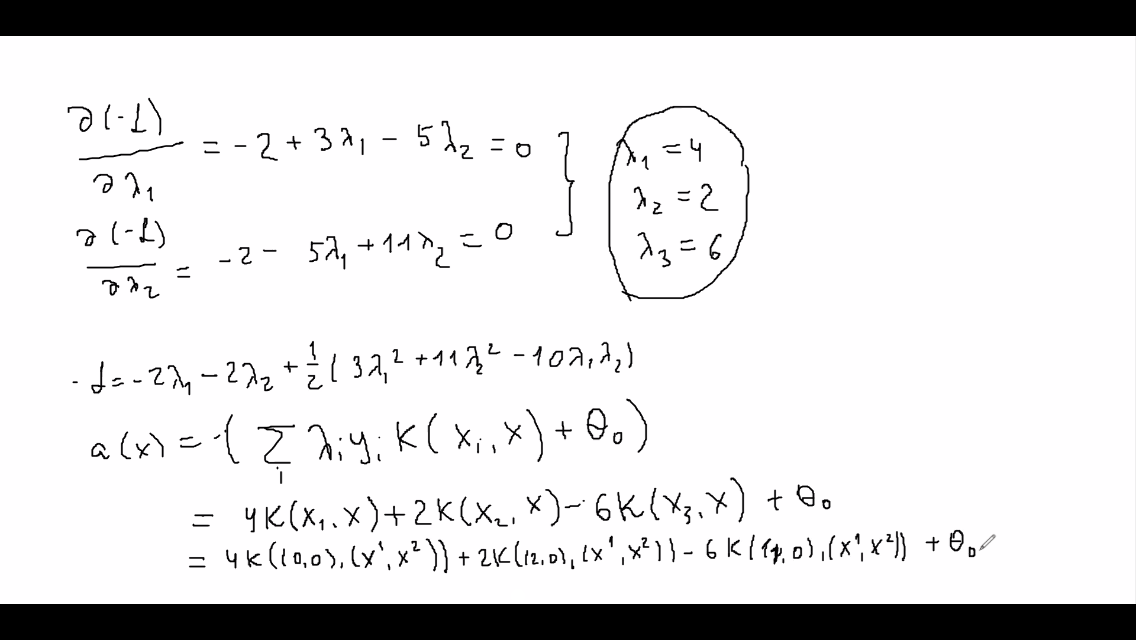 ∂(-L)/∂λ₁ = -2 + 3λ₁ - 5λ₂ = 0
∂(-L)/∂λ₂ = -2 - 5λ₁ + 11λ₂ = 0
λ₁ = 4
λ₂ = 2
λ₃ = 6
-L = -2λ₁ - 2λ₂ + 1/2 (3λ₁² + 11λ₂² - 10λ₁λ₂)
a(x) = (∑ᵢ λᵢyᵢ K(xᵢ, x) + θ₀)
= 4K(x₁, x) + 2K(x₂, x) - 6K(x₃, x) + θ₀
= 4K((0,0), (x¹, x²)) + 2K((2,0), (x¹, x²)) - 6K((1,0), (x¹, x²)) + θ₀